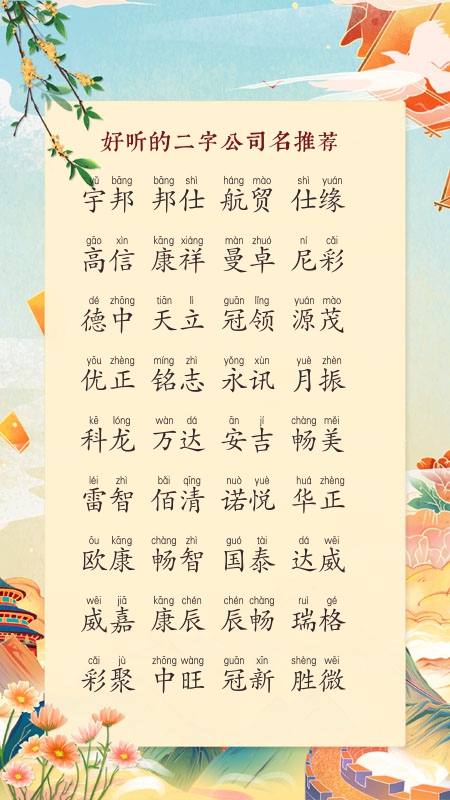 好听的二字公司名推荐
yǔ bāng bāng shì háng mào shì yuán
宇邦 邦仕 航贸 仕缘
gāo xìn kāng xiáng màn zhuó ní cǎi
高信 康祥 曼卓 尼彩
dé zhōng tiān lì guān lǐng yuán mào
德中 天立 冠领 源茂
yōu zhèng míng zhì yǒng xùn yuè zhèn
优正 铭志 永讯 月振
kē lóng wàn dá ān jí chàng měi
科龙 万达 安吉 畅美
léi zhì bǎi qīng nuò yuè huá zhèng
雷智 佰清 诺悦 华正
ōu kāng chàng zhì guó tài dá wēi
欧康 畅智 国泰 达威
wēi jiā kāng chén chén chàng ruì gé
威嘉 康辰 辰畅 瑞格
cǎi jù zhōng wàng guān xīn shèng wēi
彩聚 中旺 冠新 胜微